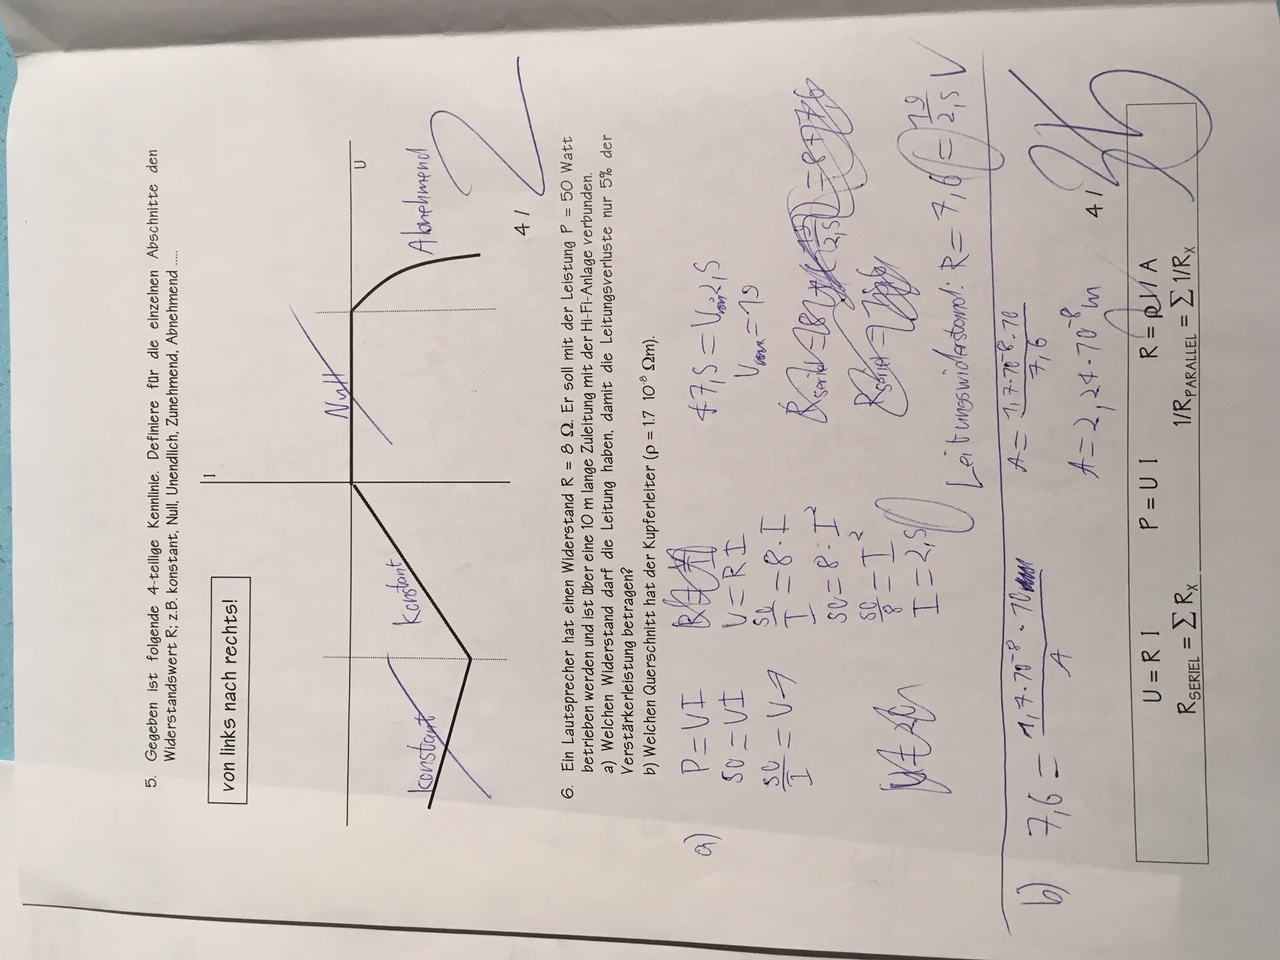 5. Gegeben ist folgende 4-teilige Kennlinie. Definiere für die einzelnen Abschnitte den
Widerstandswert R; z.B. konstant, Null, Unendlich, Zunehmend, Abnehmend .....
von links nach rechts!
I
Null
U
konstant
Konstant
Abnehmend
4 / 2
6. Ein Lautsprecher hat einen Widerstand R = 8 Ω. Er soll mit der Leistung P = 50 Watt
betrieben werden und ist über eine 10 m lange Zuleitung mit der Hi-Fi-Anlage verbunden.
a) Welchen Widerstand darf die Leitung haben, damit die Leitungsverluste nur 5% der
Verstärkerleistung betragen?
b) Welchen Querschnitt hat der Kupferleiter (ρ = 1.7 10⁻⁸ Ωm).
a)
P = VI
50 = VI
50/I = V
V = R I
50/I = 8 · I
50 = 8 · I²
50/8 = I²
I = 2,5
47,5 = V 2,5
V = 19
Leitungswiderstand: R = 7,6 = 19/2,5
b)
7,6 = 1,7·10⁻⁸ · 10 / A
A = 1,7·10⁻⁸·10 / 7,6
A = 2,24·10⁻⁸ m
4 /
U = R I
P = U I
R = ρ l / A
R SERIEL = ∑ Rx
1/R PARALLEL = ∑ 1/Rx